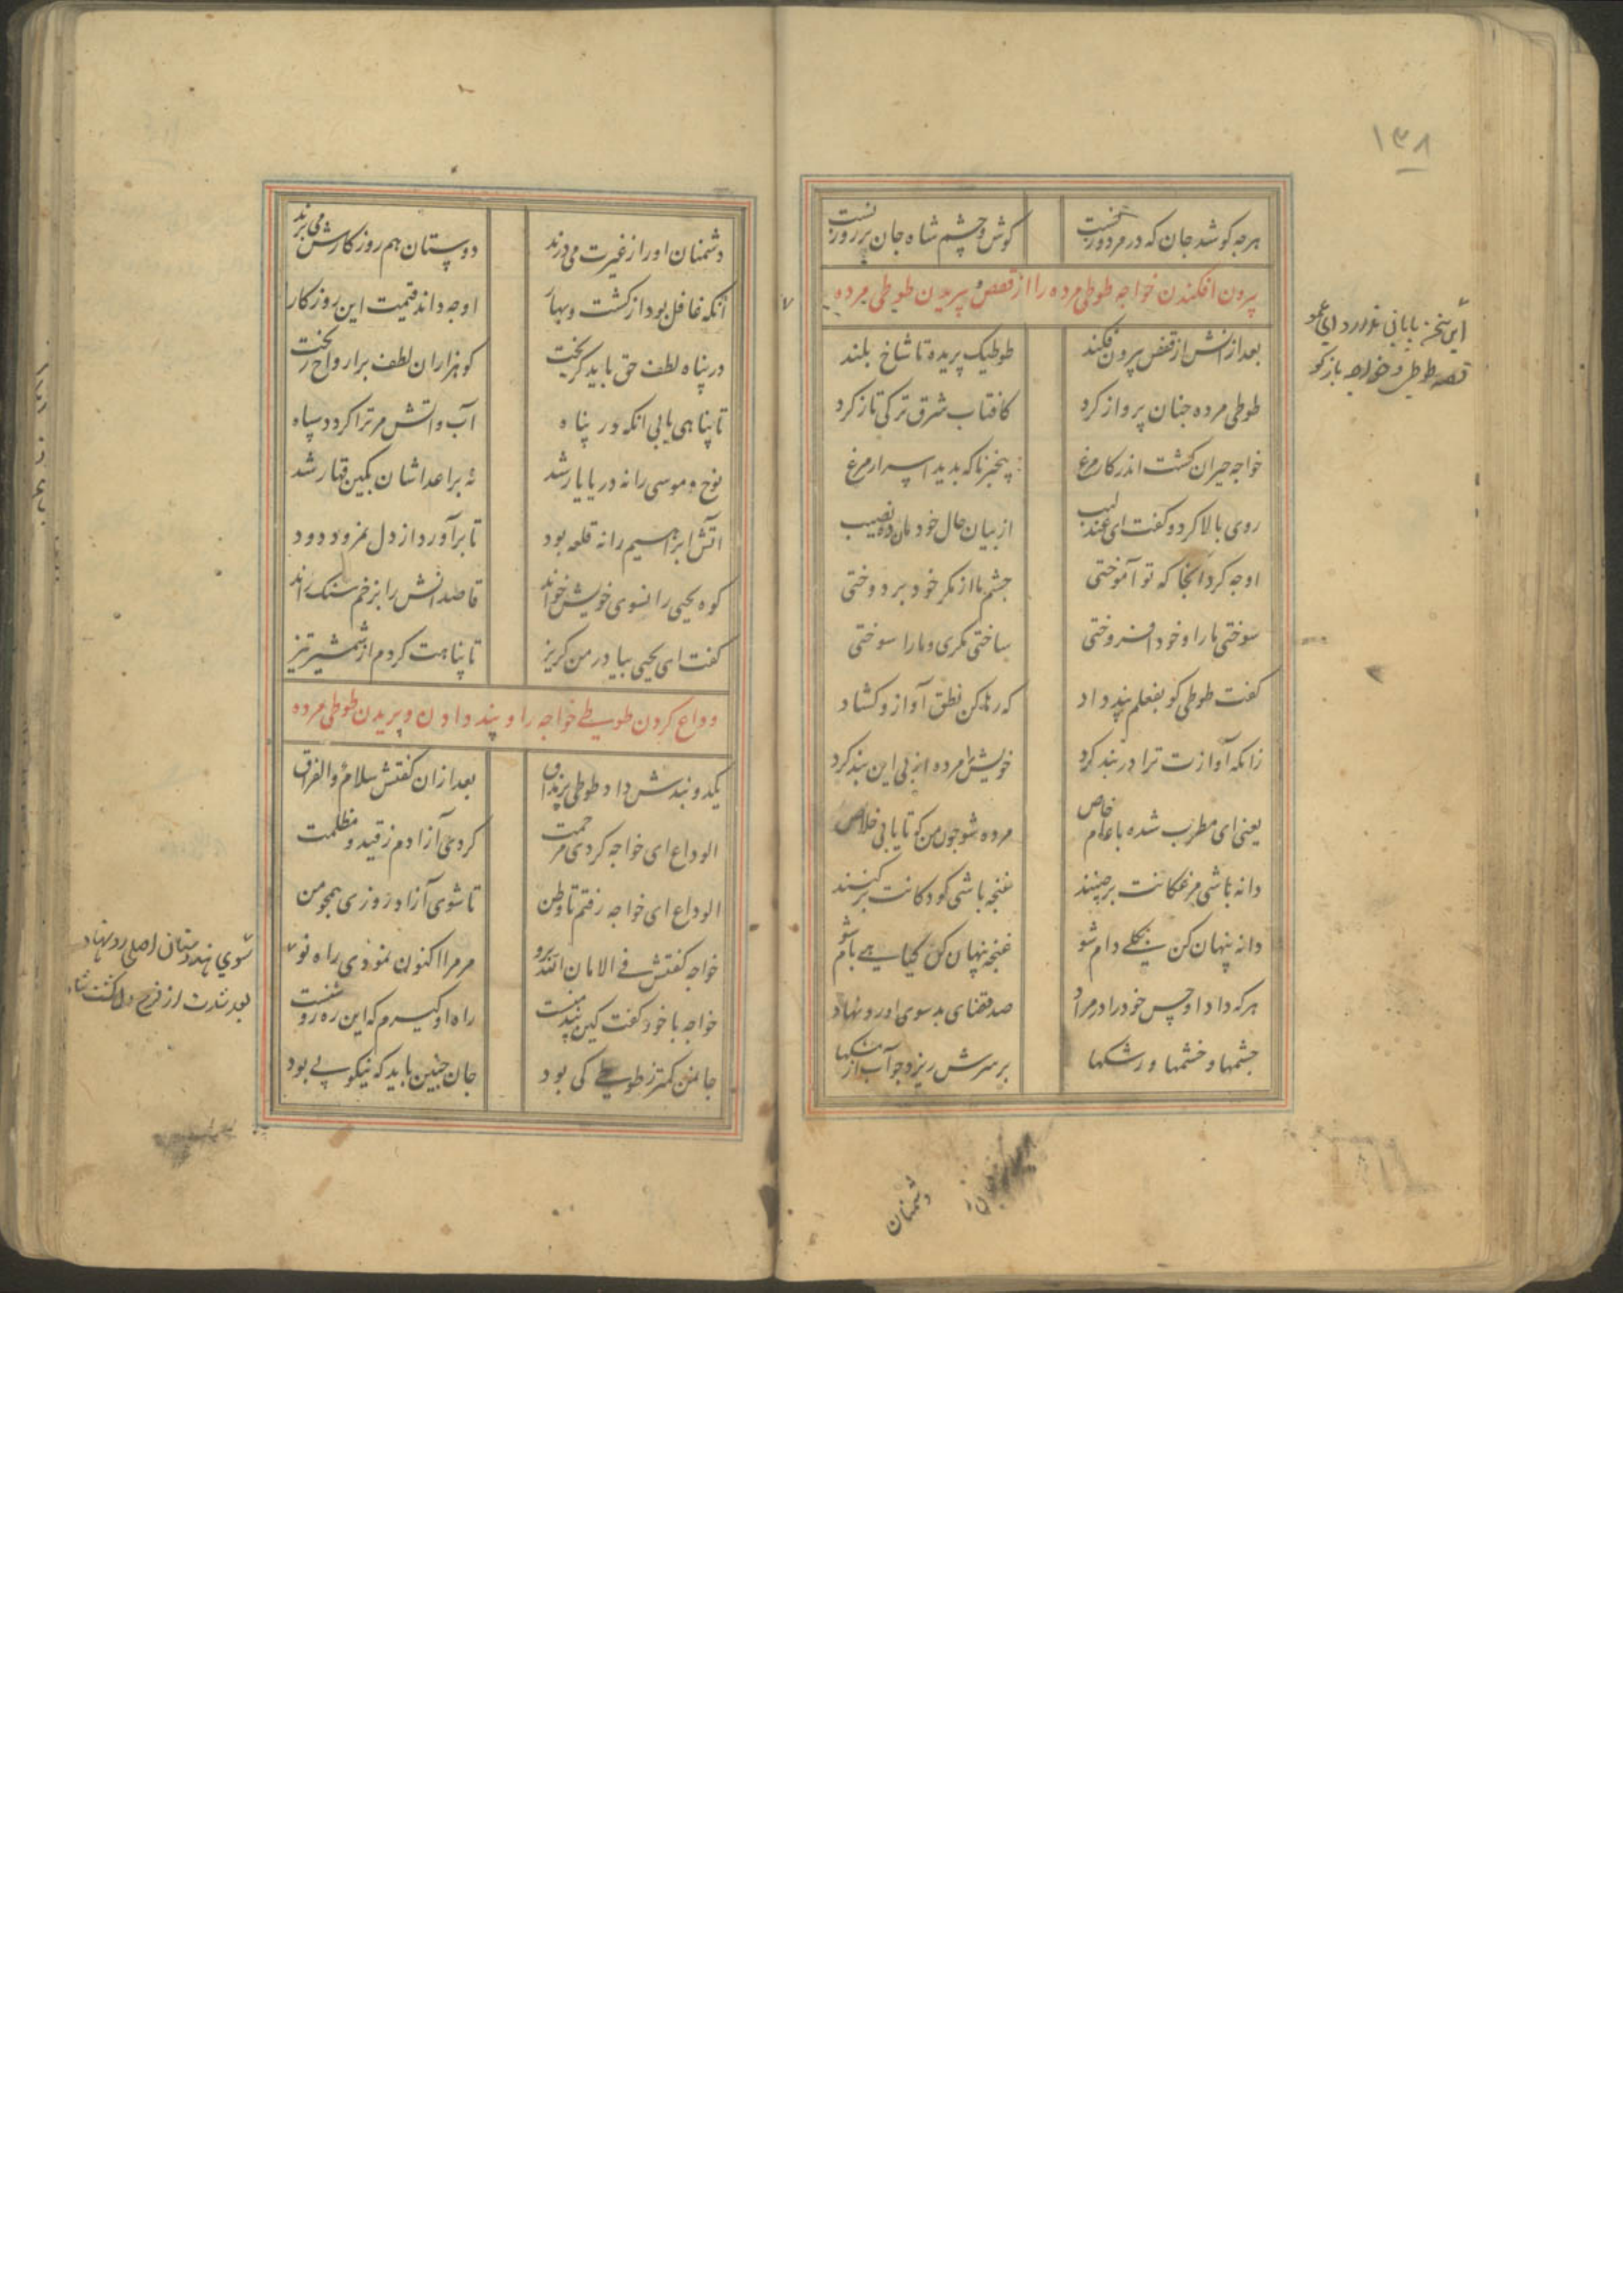 ۱۳۸
هرچه کوشد جان که در مرد و زنست کوش و چشم شاه جان بر روزنست
بیرون افکندن خواجه طوطی مرده را از قفص و پریدن طوطی مرده
بعد از انش از قفص بیرون فکند طوطیک پریده تا شاخ بلند
طوطی مرده چنان پرواز کرد کافتاب شرق ترکی تاز کرد
خواجه حیران کشت اندر کار مرغ بیخبر ناکه بدید اسرار مرغ
روی بالا کرد و کفت ای عندلیب از بیان حال خود مان ده نصیب
او چه کرد آنجا که تو آموختی چشم ما از مکر خود بر دوختی
سوختی ما را و خود افروختی ساختی مکری و ما را سوختی
کفت طوطی کو بفعلم پند داد که رها کن نطق آواز و کشاد
زانکه آوازت ترا در بند کرد خویش مرده از پی این پند کرد
یعنی ای مطرب شده با عام خاص مرده شو چون من که تا یابی خلاص
دانه باشی مرغکانت برچینند غنچه باشی کودکانت برکنند
دانه پنهان کن بکلی دام شو غنچه پنهان کن کیاهی بام شو
هر که داد او حسن خود را در مراد صد قضای بد سوی او رو نهاد
چشمها و خشمها و رشکها بر سرش ریزد چو آب از مشکها
این سخن پایانی ندارد ای عمو
قصه طوطی و خواجه بازکو
دشمنان
دشمنان او را ز غیرت می‌درند دوستان هم روزکارش می‌برند
آنکه غافل بود از کشت و بهار او چه داند قیمت این روزکار
در پناه لطف حق باید کریخت کو هزاران لطف بر ارواح ریخت
تا پناهی یابی انکه در پناه آب و اتش مر ترا کردد سپاه
نوح و موسی را نه دریا یار شد نه بر اعداشان بکین قهار شد
آتش ابراهیم را نه قلعه بود تا برآورد از دل نمرود دود
کوه یحیی را نسوی خویش خواند قاصدانش را بزخم سنک راند
کفت ای یحیی بیا در من کریز تا پناهت کردم از شمشیر تیز
وداع کردن طوطی خواجه را و پند دادن و پریدن طوطی مرده
یک دو پندش داد طوطی پر نفاق بعد ازان کفتش سلام و الفراق
الوداع ای خواجه کردی مرحمت کردی آزادم ز قید و مظلمت
الوداع ای خواجه رفتم تا وطن تا شوی آزاد روزی همچو من
خواجه کفتش فی الامان الله برو مر مرا اکنون نمودی راه نو
خواجه با خود کفت کین پند منست راه او کیرم که این ره روشنست
جان من کمتر ز طوطی کی بود جان چنین باید که نیکو پی بود
سوی هندوستان اصلی رو نهاد
بعد شدت از فرح دل کشت شاد